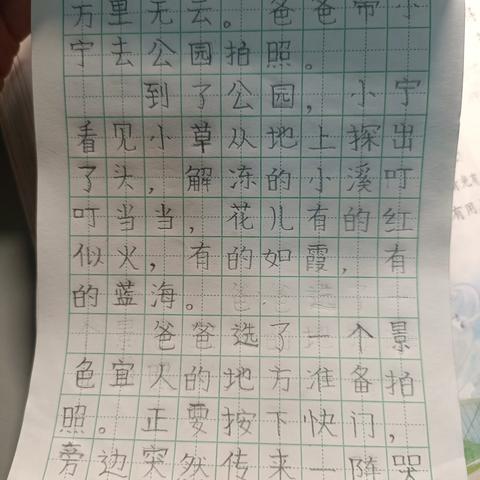 方里无云。爸爸带小
宁去公园拍照。
到了公园，小宁
看见小草从地上探出
了头，解冻的小溪叮
叮当当，花儿有的红
似火，有的如霞，有
的蓝海。
爸爸选了一个景
色宜人的地方准备拍
照。正要按下快门，
旁边突然传来一阵哭
有用